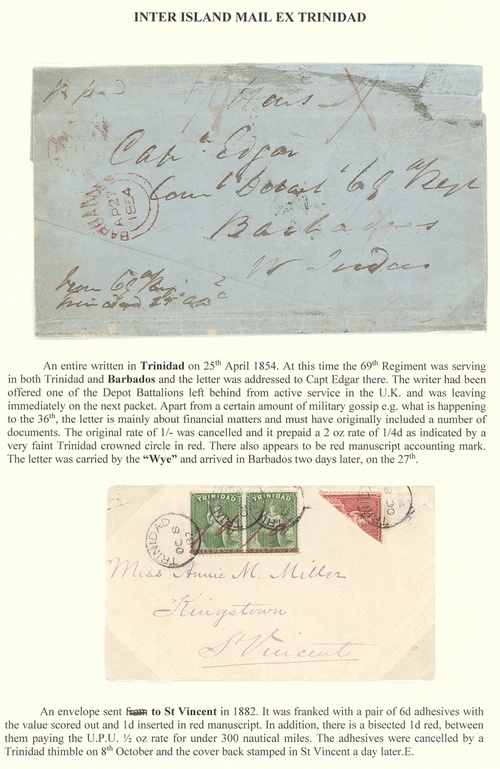 INTER ISLAND MAIL EX TRINIDAD
Capt Edgar
69th Regt
Barbados
W Indies
BARBADOES
AP 27
1854
An entire written in Trinidad on 25th April 1854. At this time the 69th Regiment was serving
in both Trinidad and Barbados and the letter was addressed to Capt Edgar there. The writer had been
offered one of the Depot Battalions left behind from active service in the U.K. and was leaving
immediately on the next packet. Apart from a certain amount of military gossip e.g. what is happening
to the 36th, the letter is mainly about financial matters and must have originally included a number of
documents. The original rate of 1/- was cancelled and it prepaid a 2 oz rate of 1/4d as indicated by a
very faint Trinidad crowned circle in red. There also appears to be red manuscript accounting mark.
The letter was carried by the “Wye” and arrived in Barbados two days later, on the 27th.
TRINIDAD TRINIDAD
TRINIDAD
8 OC
Miss Annie M. Miller
Kingstown
St Vincent
An envelope sent from to St Vincent in 1882. It was franked with a pair of 6d adhesives with
the value scored out and 1d inserted in red manuscript. In addition, there is a bisected 1d red, between
them paying the U.P.U. ½ oz rate for under 300 nautical miles. The adhesives were cancelled by a
Trinidad thimble on 8th October and the cover back stamped in St Vincent a day later.E.